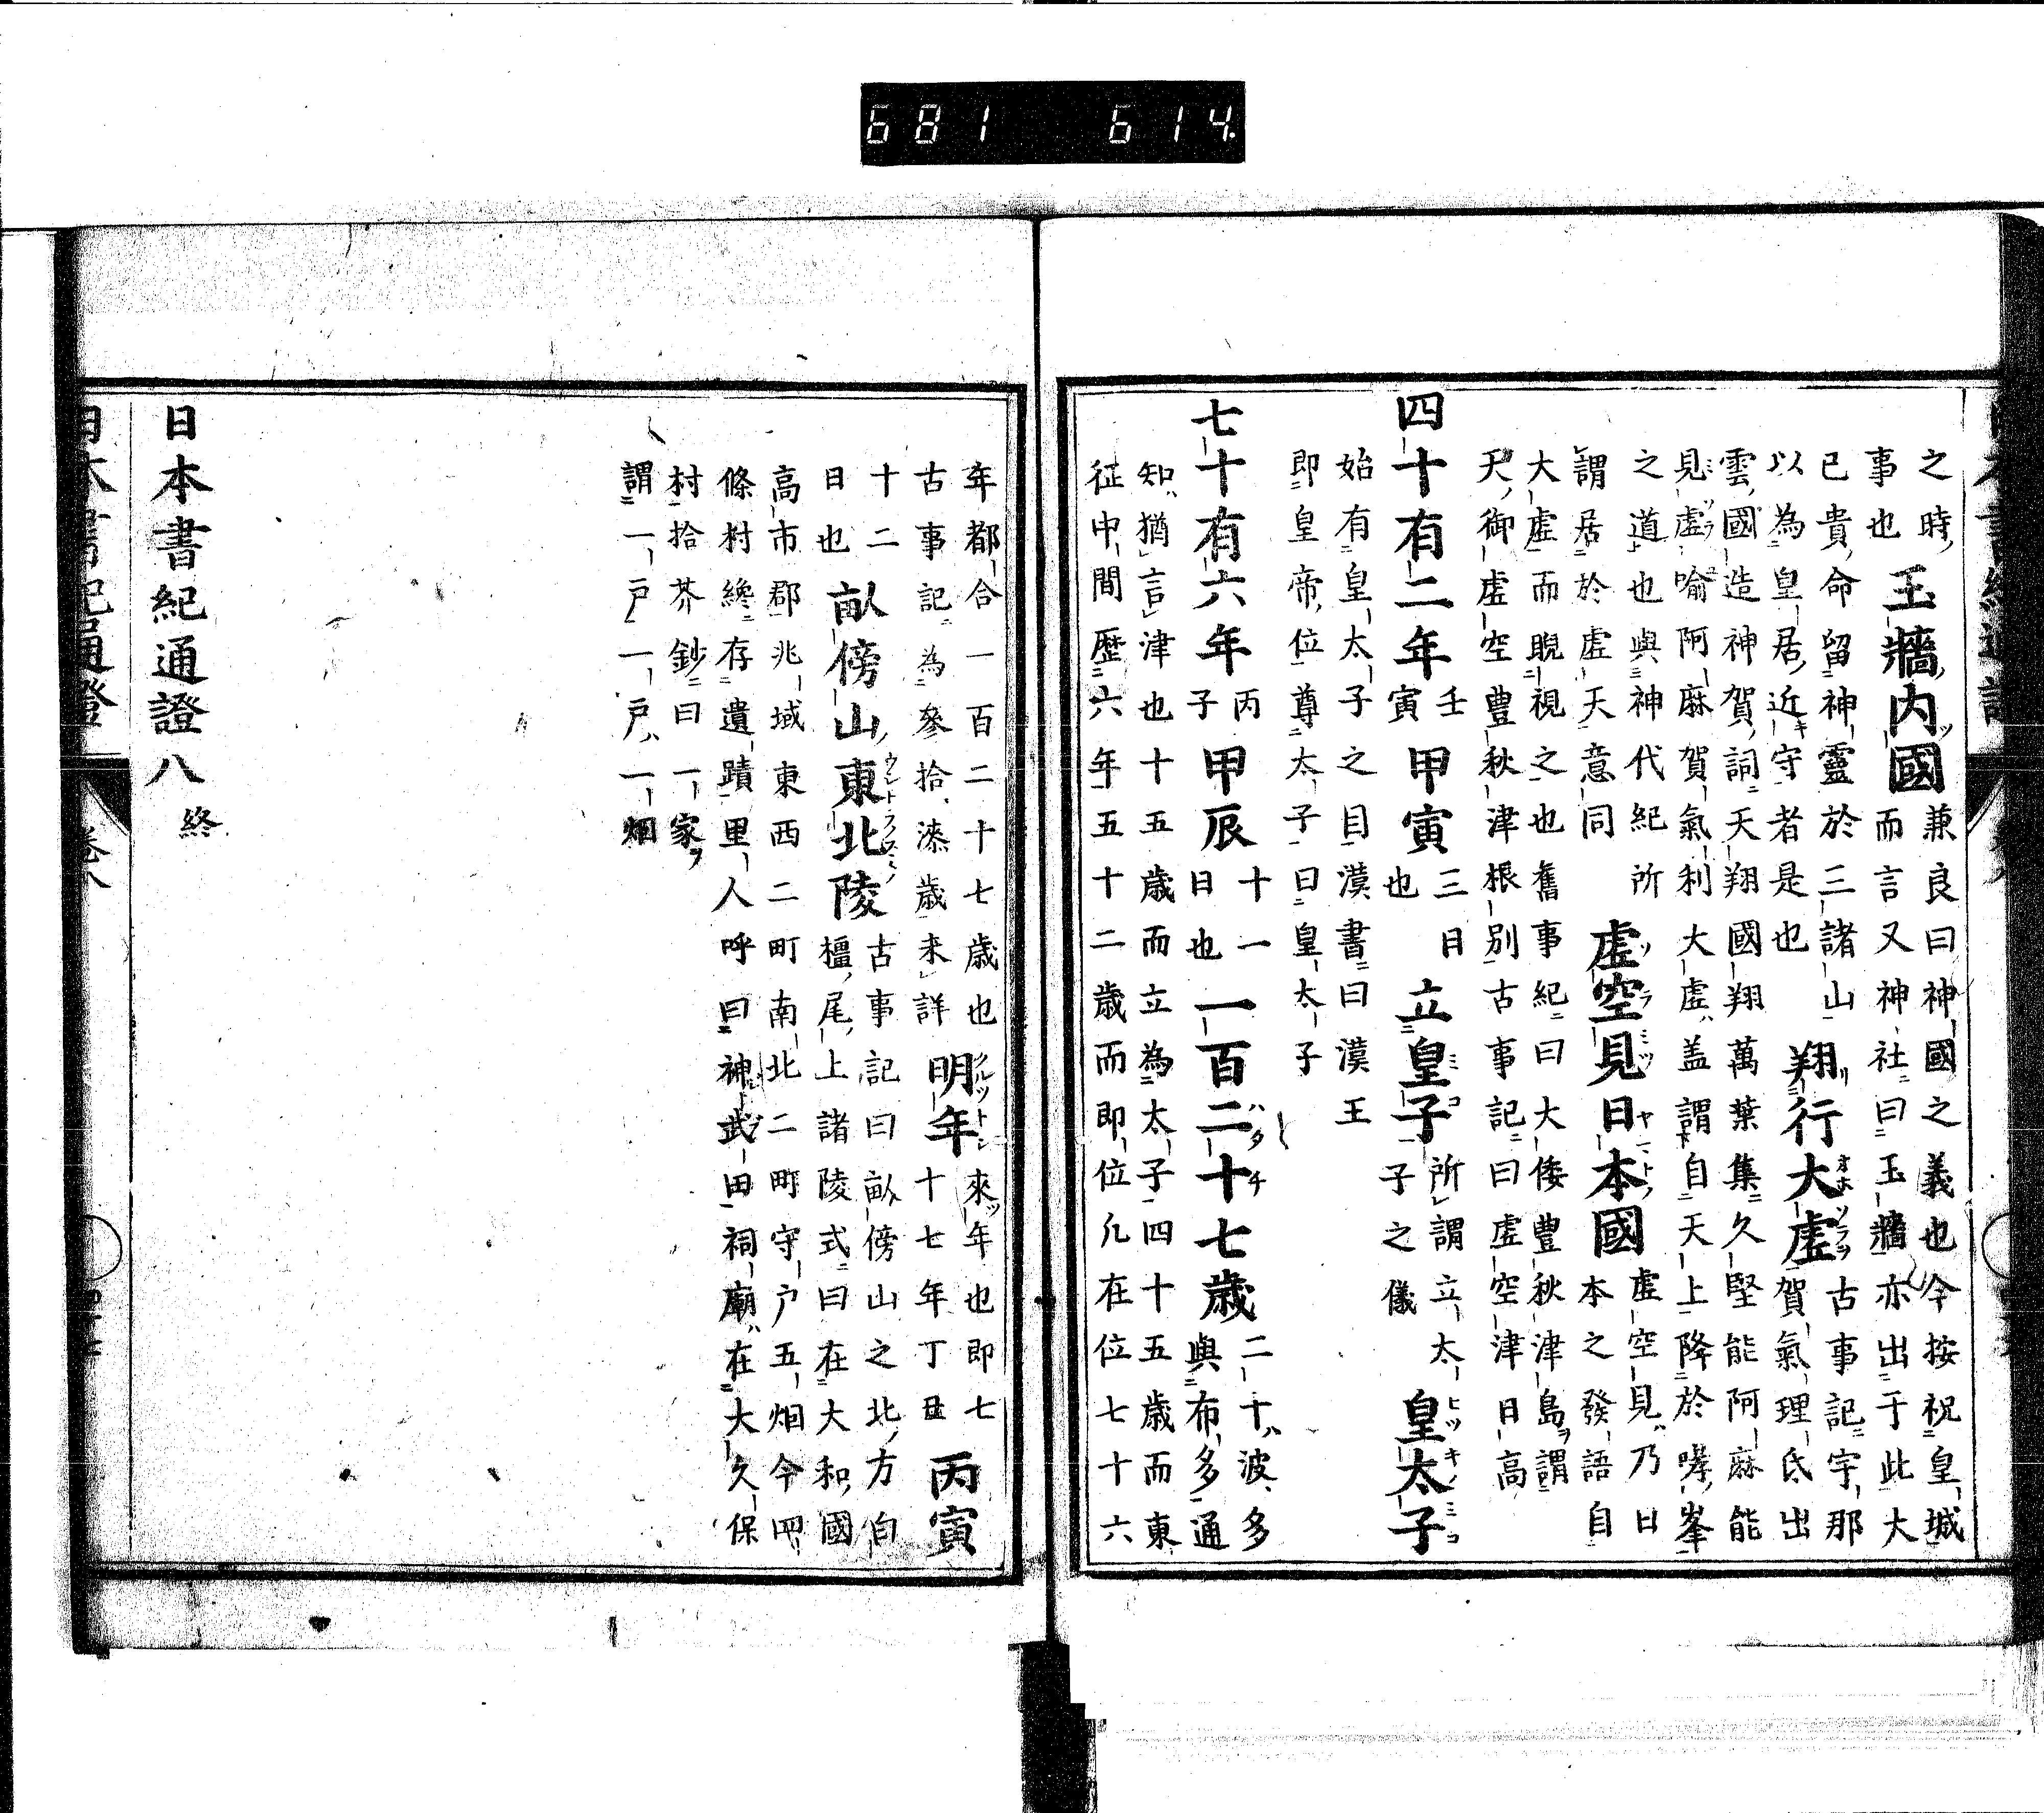 681 614
之時
事也
玉牆内國
兼良曰神國之義也今按祝皇城
而言又神社曰玉牆亦出于此大
已貴命留神靈於三諸山
以為皇居近守者是也
翔行大虛
古事記宇那
賀氣理氐出
雲國造神賀詞天翔國翔萬葉集久堅能阿麻能
見虛喻阿麻賀氣利大虛盖謂自天上降於哮峯
之道也與神代紀所
謂居於虛天意同
虛空見日本國
虛空見乃日
本之發語自
大虛而睨視之也舊事紀曰大倭豊秋津島謂
天御虛空豊秋津根別古事記曰虛空津日高
四十有二年
壬
寅
甲寅
三日
也
立皇子
所謂立太
子之儀
皇太子
始有皇太子之目漢書曰漢王
即皇帝位尊太子曰皇太子
七十有六年
丙
子
甲辰
十一
日也
一百二十七歲
二十波多
與布多通
知猶言津也十五歲而立為太子四十五歲而東
征中間歷六年五十二歲而即位凢在位七十六
年都合一百二十七歲也
古事記為參拾漆歲未詳
明年
來年也即七
十七年丁丑
丙寅
十二
日也
畝傍山東北陵
古事記曰畝傍山之北方白
檮尾上諸陵式曰在大和國
高市郡兆域東西二町南北二町守戶五烟今四
條村纔存遺蹟里人呼曰神武田祠廟在大久保
村拾芥鈔曰一家
謂一戶一戶一烟
日本書紀通證八終
日本書紀通證
卷八